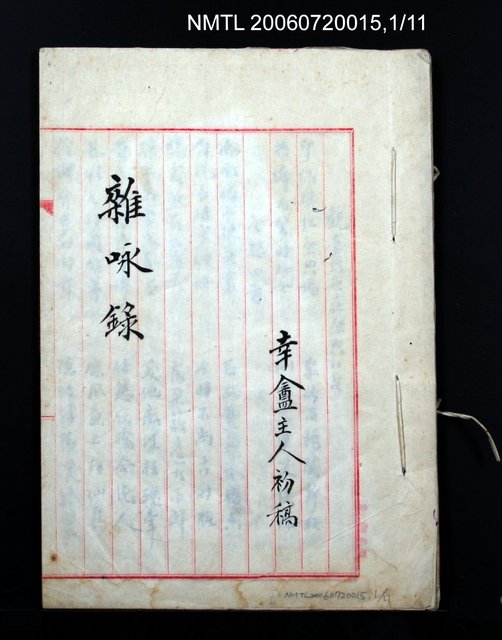 NMTL 20060720015,1/11
幸盦主人初稿
雜咏錄
NMTL20060720015,1/11